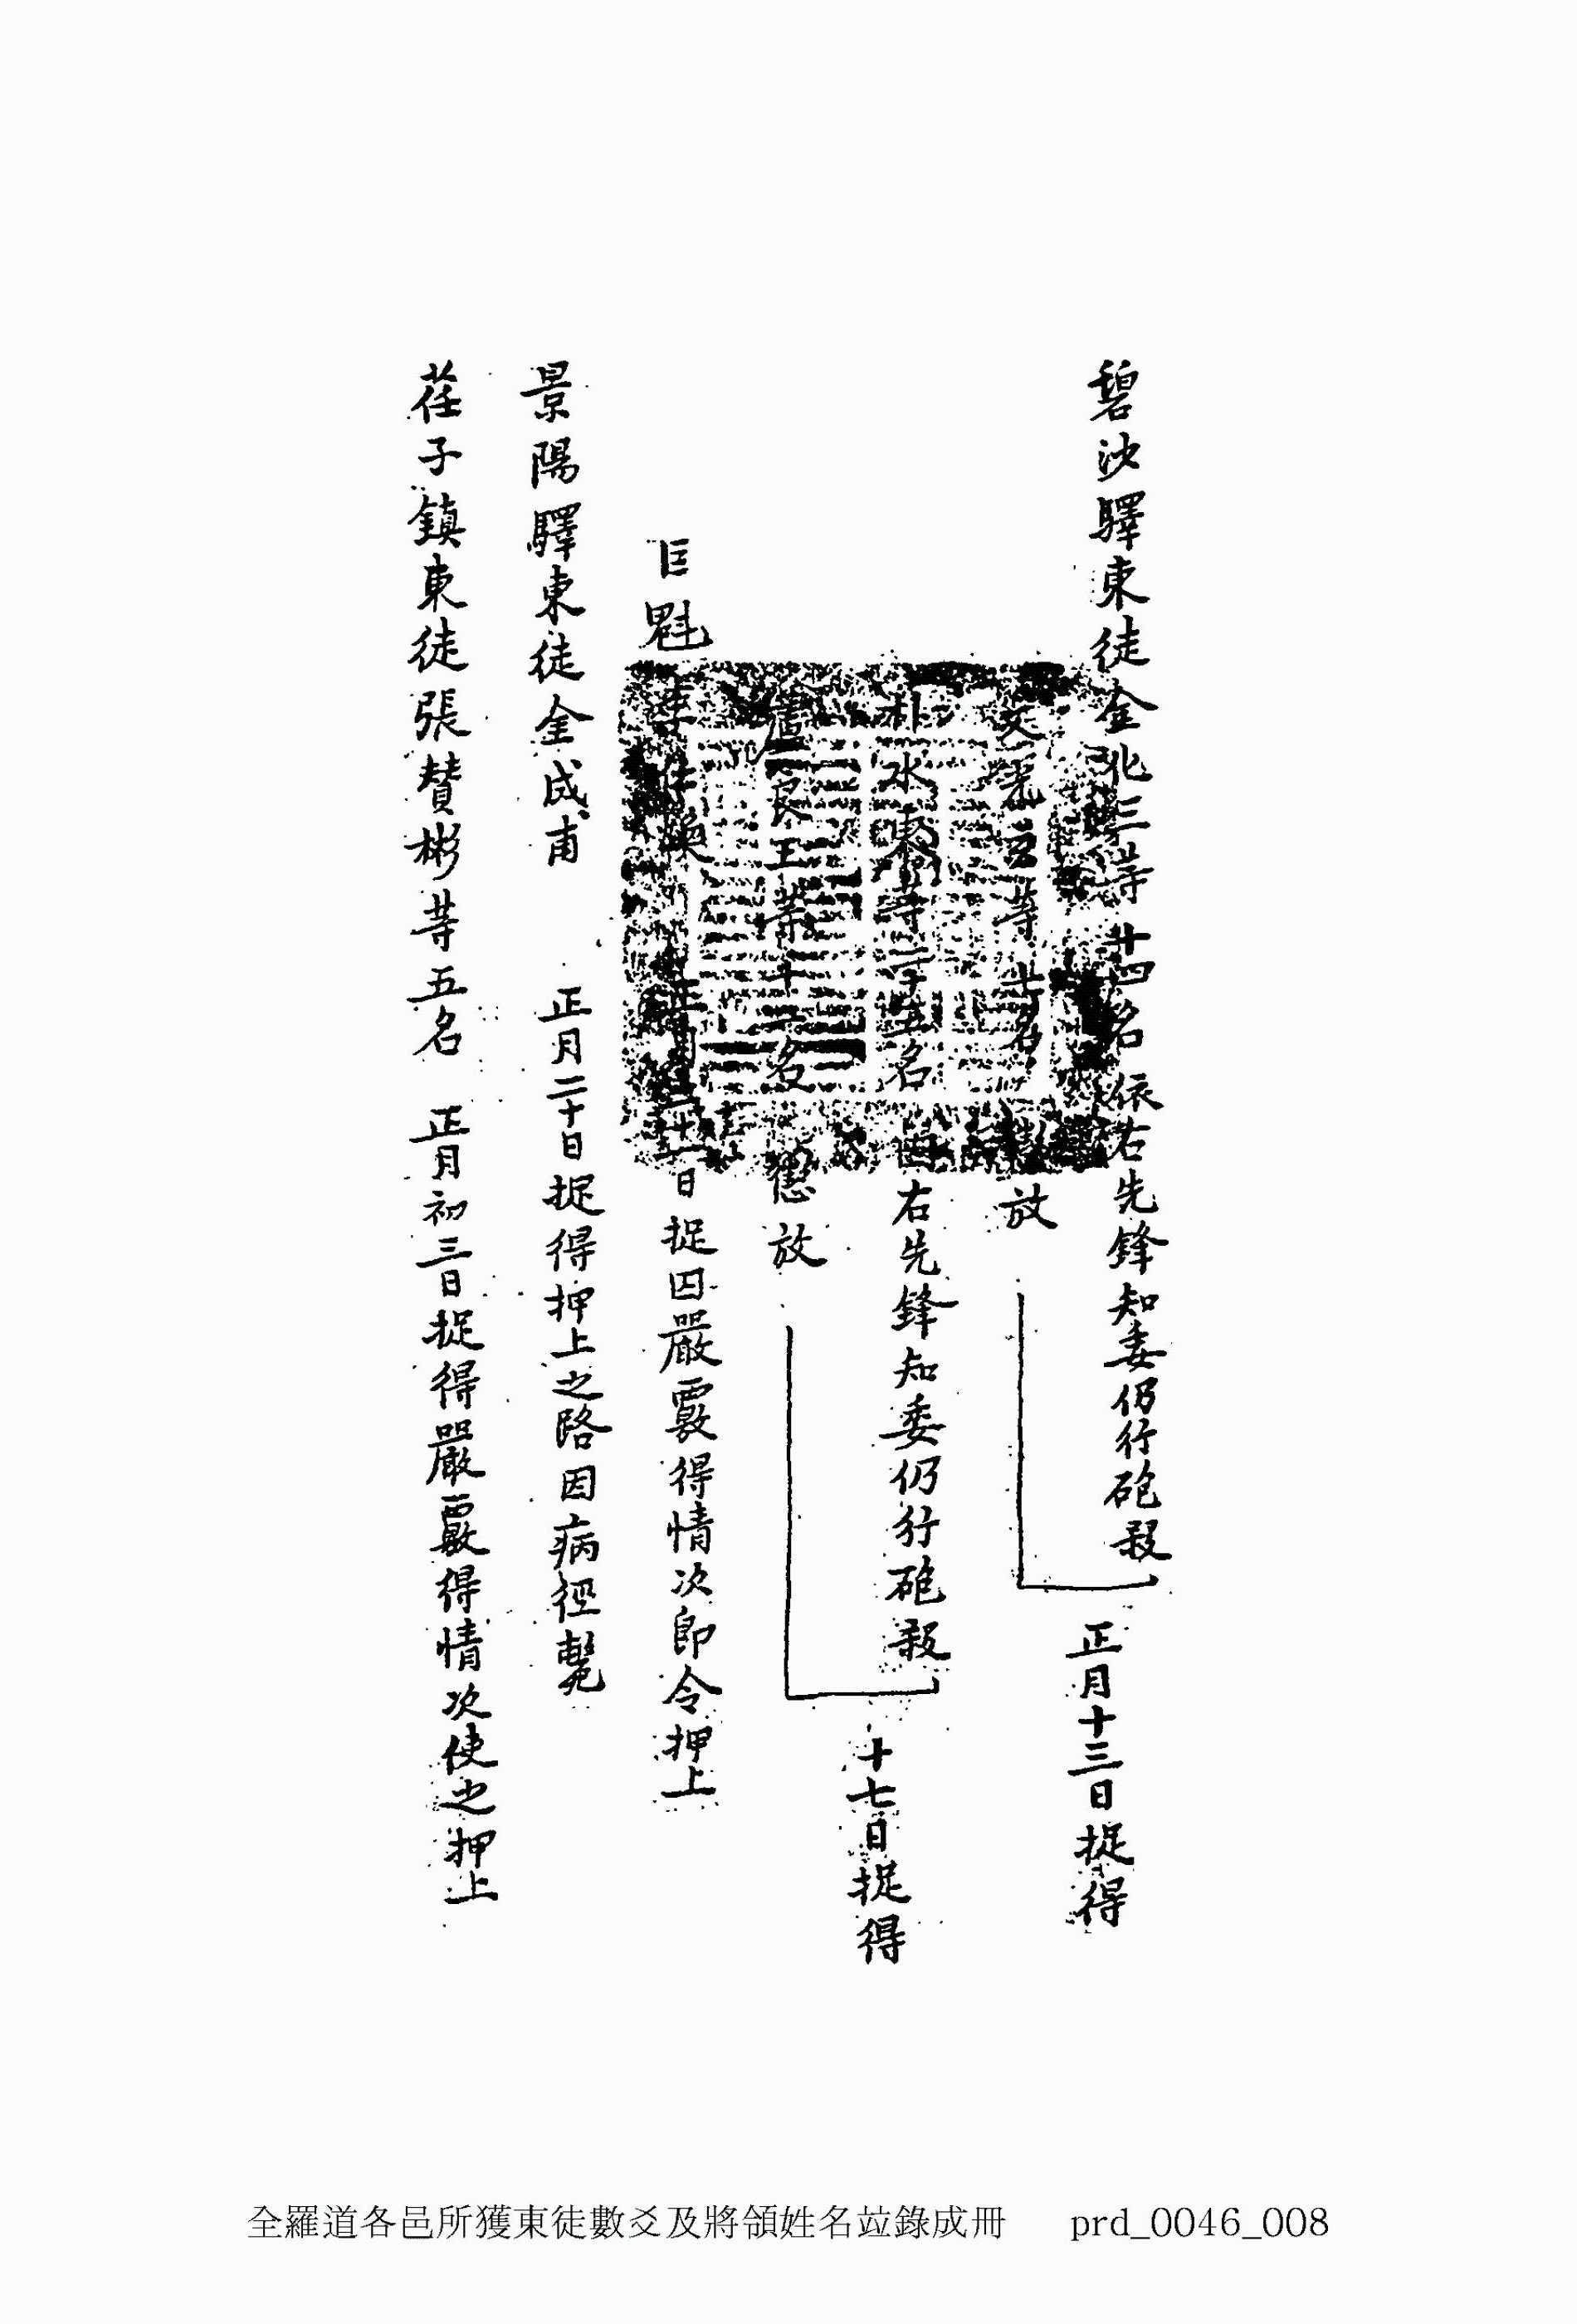 碧沙驛東徒金兆三等廿四名依右先鋒知委仍行砲殺
正月十三日捉得
文 等七名 放
朴水東等 名 右先鋒知委仍行砲殺
十七日捉得
良 等十二名懲放
巨魁李 煥 日捉囚嚴覈得情次卽令押上
景陽驛東徒金成甫 正月二十日捉得押上之路因病徑斃
荏子鎭東徒張贊彬等五名 正月初三日捉得嚴覈得情次使之押上
全羅道各邑所獲東徒數爻及將領姓名竝錄成冊 prd_0046_008